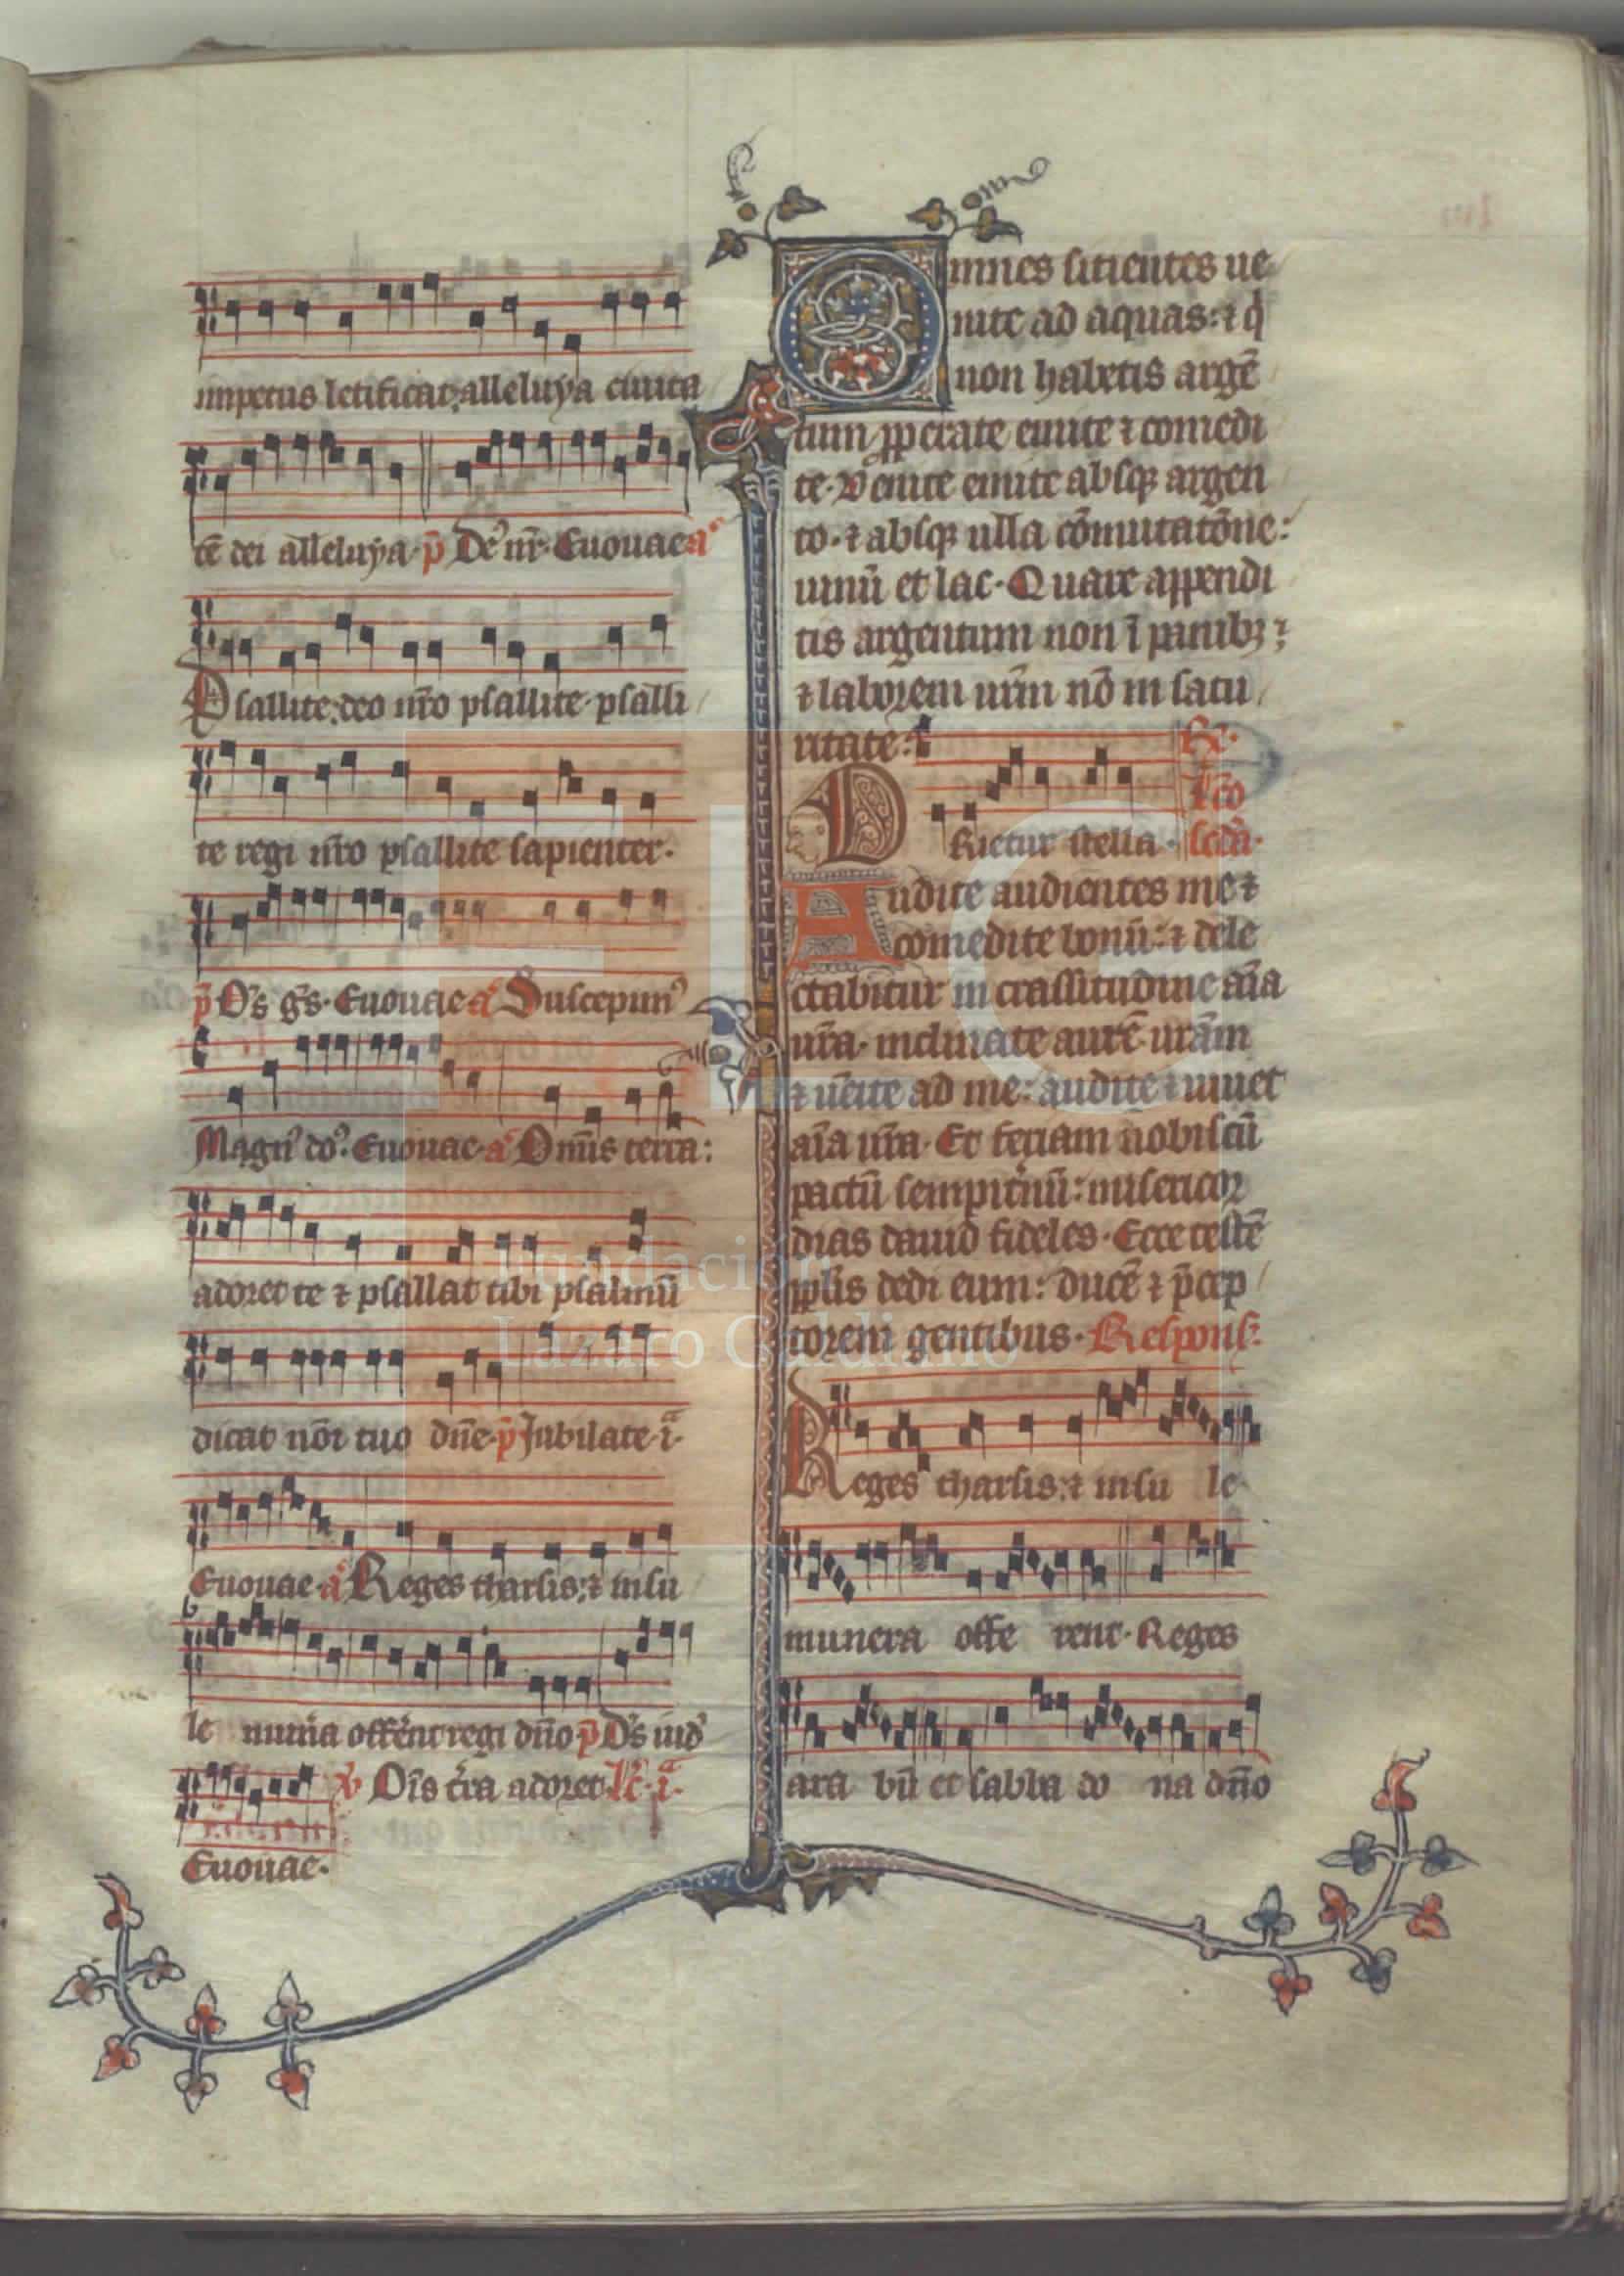 impetus letificat; alleluya ciuita
tē dei alleluya. p̄ De᾽ nr̄. Euouae a᷎
Psallite; deo nr̄o psallite. psalli
te regi nr̄o psallite sapienter.
p̄ O᾽s gs̄. Euouae a᷎ Suscepim᾽
Magn᾽ do᾽. Euouae. a᷎ Omīs terra:
adoret te ⁊ psallat tibi psalmū
dicat nōi tuo dn̄e. p̄ Jubilate. i᷎.
Euouae. a᷎ Reges tharsis; ⁊ insu
le mun̄a offer̄nt regi dn̄o p̄ D᾽s iud᾽
℣ Oīs t̄ra adoret. Lc̄. i᷎.
Euouae.
Omnes sitientes ue
nite ad aquas: ⁊ q̄
non habetis argē
tum ꝓperate emite ⁊ comedi
te. Venite emite absqꝫ argen
to. ⁊ absqꝫ ulla cōmutatōne:
uinū et lac. Quare appendi
tis argentum non ī panibꝫ:
⁊ laborem ur̄m nō in satu
ritate: R̄.
Lc̄o
Orietur stella. sc̄da.
Audite audientes me ⁊
comedite bonū: ⁊ dele
ctabitur in crassitudine aīa
ur̄a. inclinate aurē. ur̄am
⁊ uēite ad me: audite ⁊ uiuet
aīa ur̄a. Et feriam uobiscū
pactū sempit̄nū: misericor
dias dauid fideles. Ecce testē
ppl̄is dedi eum: ducē ⁊ p̄cep
torem gentibus. Respons̄.
Reges tharsis; ⁊ insu le
munera offe rent. Reges
ara bū et sabba do na dn̄o
Fundación
Lázaro Galdiano
FLG